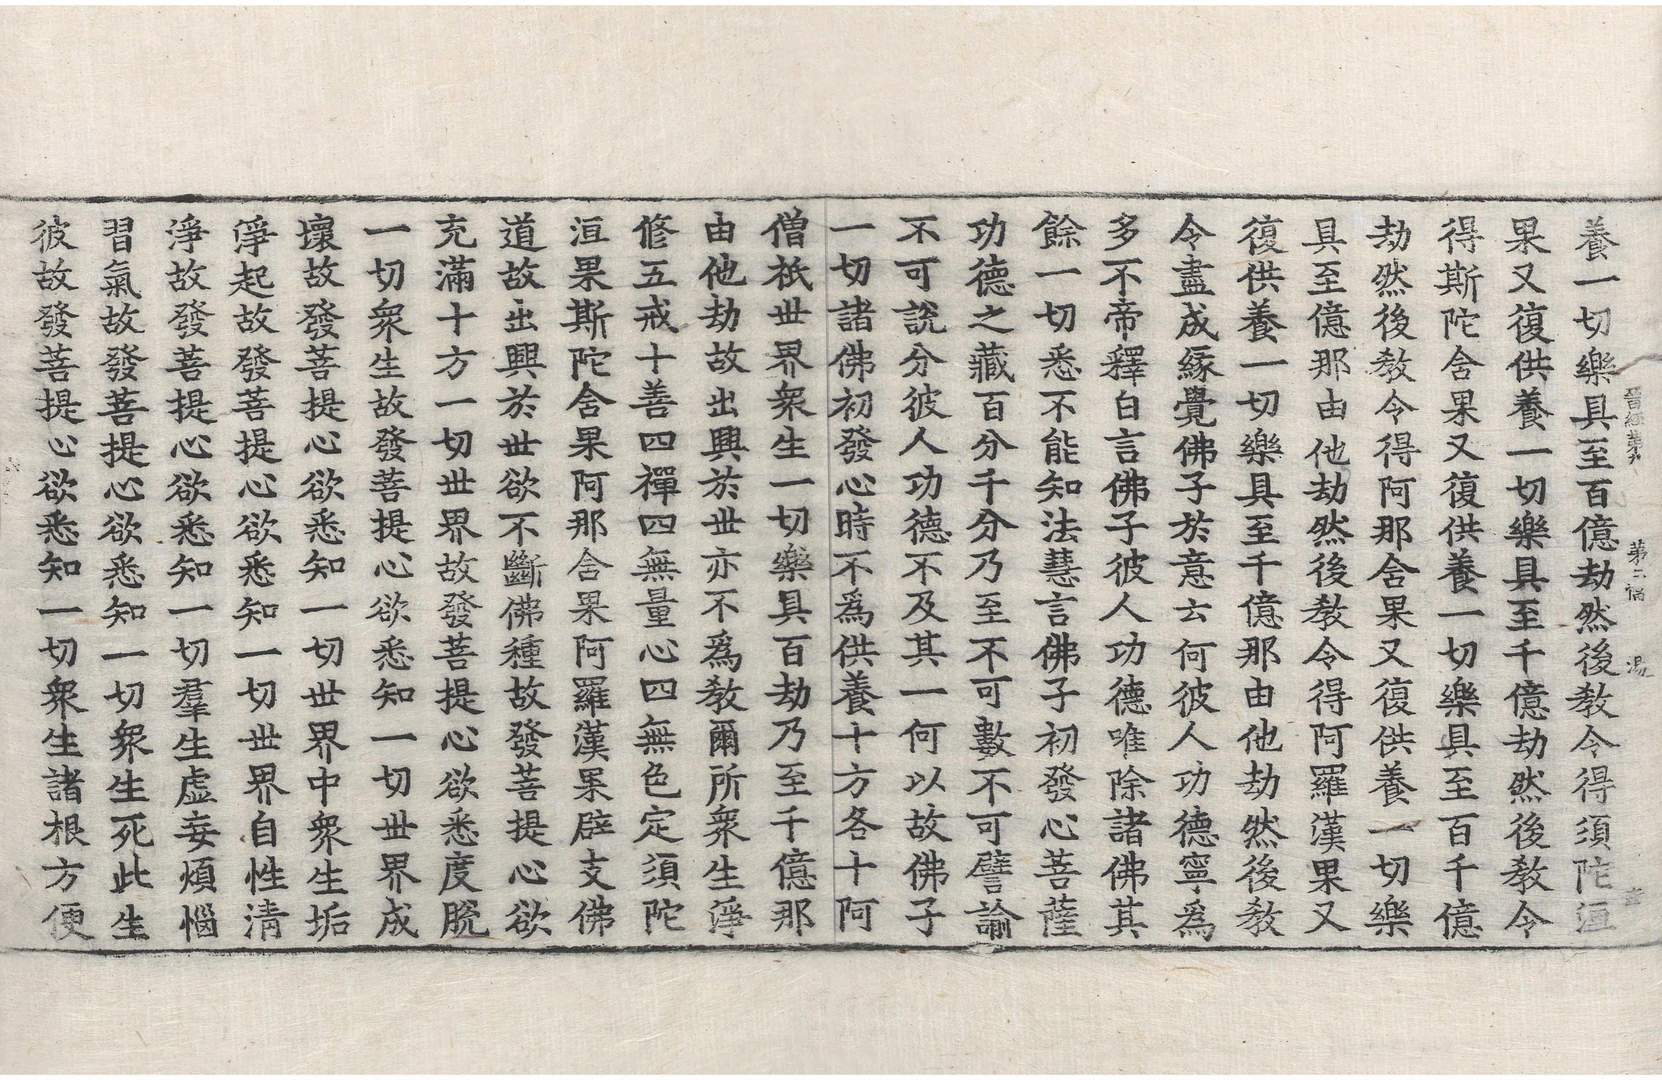 養一切樂具至百億劫然後敎令得須陀洹
果又復供養一切樂具至千億劫然後敎令
得斯陀含果又復供養一切樂具至百千億
劫然後敎令得阿那含果又復供養一切樂
具至億那由他劫然後敎令得阿羅漢果又
復供養一切樂具至千億那由他劫然後敎
令盡成緣覺佛子於意云何彼人功德寧爲
多不帝釋白言佛子彼人功德唯除諸佛其
餘一切悉不能知法慧言佛子初發心菩薩
功德之藏百分千分乃至不可數不可譬諭
不可說分彼人功德不及其一何以故佛子
一切諸佛初發心時不爲供養十方各十阿
僧祇世界衆生一切樂具百劫乃至千億那
由他劫故出興於世亦不爲敎爾所衆生淨
修五戒十善四禪四無量心四無色定須陀
洹果斯陀含果阿那含果阿羅漢果辟支佛
道故出興於世欲不斷佛種故發菩提心欲
充滿十方一切世界故發菩提心欲悉度脫
一切衆生故發菩提心欲悉知一切世界成
壞故發菩提心欲悉知一切世界中衆生垢
淨起故發菩提心欲悉知一切世界自性淸
淨故發菩提心欲悉知一切羣生虛妄煩惱
習氣故發菩提心欲悉知一切衆生死此生
彼故發菩提心欲悉知一切衆生諸根方便